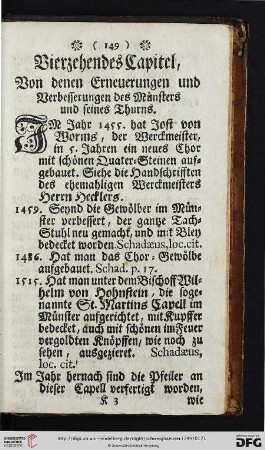 ( 149 )
Vierzehendes Capitel,
Von denen Erneuerungen und
Verbesserungen des Münsters
und seines Thurns.
IM Jahr 1455. hat Jost von
Worms, der Werckmeister,
in 5. Jahren ein neues Chor
mit schönen Quater-Steinen auf-
gebauet. Siehe die Handschrifften
des ehemahligen Werckmeisters
Herrn Hecklers.
1459. Seynd die Gewölber im Mün-
ster verbessert, der gantze Tach-
Stuhl neu gemacht, und mit Bley
bedecket worden. Schadæus, loc. cit.
1486. Hat man das Chor-Gewölbe
aufgebauet. Schad. p. 17.
1515. Hat man unter dem Bischoff Wil-
helm von Hohnstein, die soge-
nannte St. Martins Capell im
Münster aufgerichtet, mit Kupffer
bedecket, auch mit schönen im Feuer
vergoldten Knöpffen, wie noch zu
sehen, ausgezieret. Schadæus,
loc. cit.
Im Jahr hernach sind die Pfeiler an
dieser Capell verfertigt worden,
K 3 wie
UNIVERSITÄTS-
BIBLIOTHEK
HEIDELBERG
© Universitätsbibliothek Heidelberg
gefördert durch die
DFG